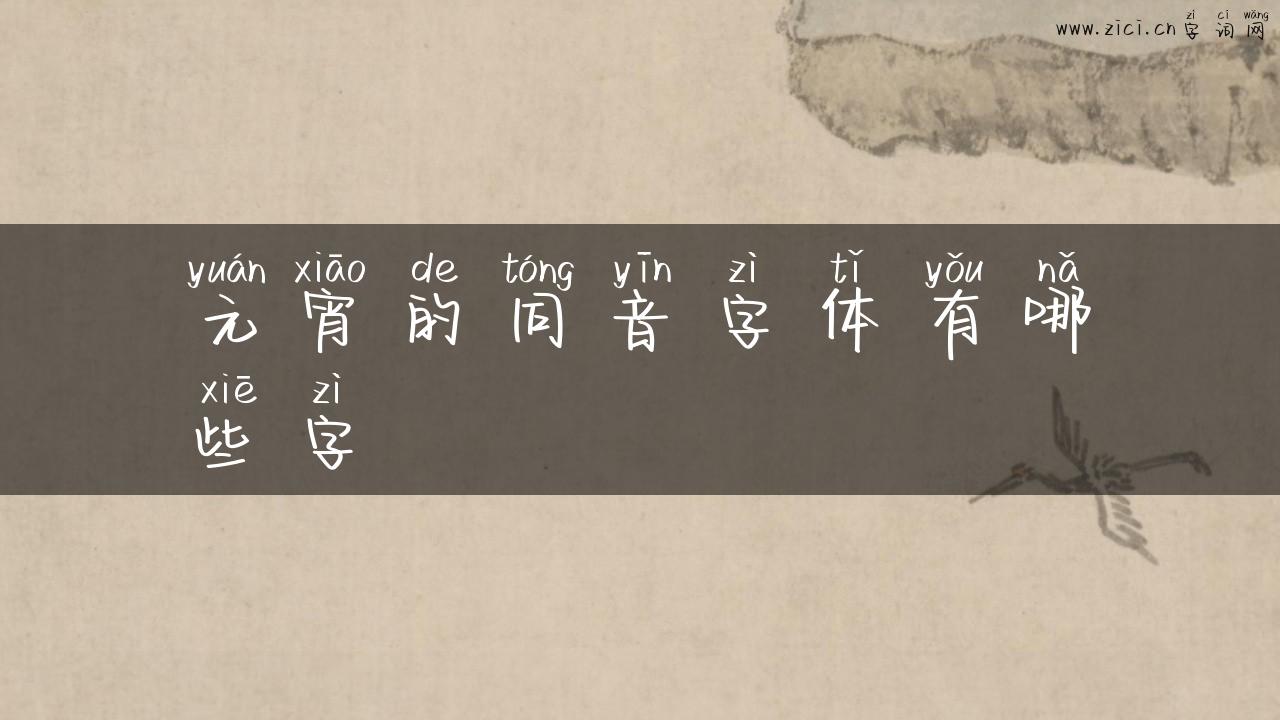 zì cí wǎng
www.zici.cn 字词网
yuán xiāo de tóng yīn zì tǐ yǒu nǎ
元宵的同音字体有哪
xiē zì
些字